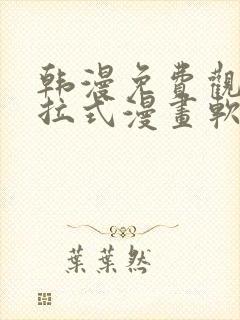 韩漫免費觀
拉式漫畫軟
葉葉然